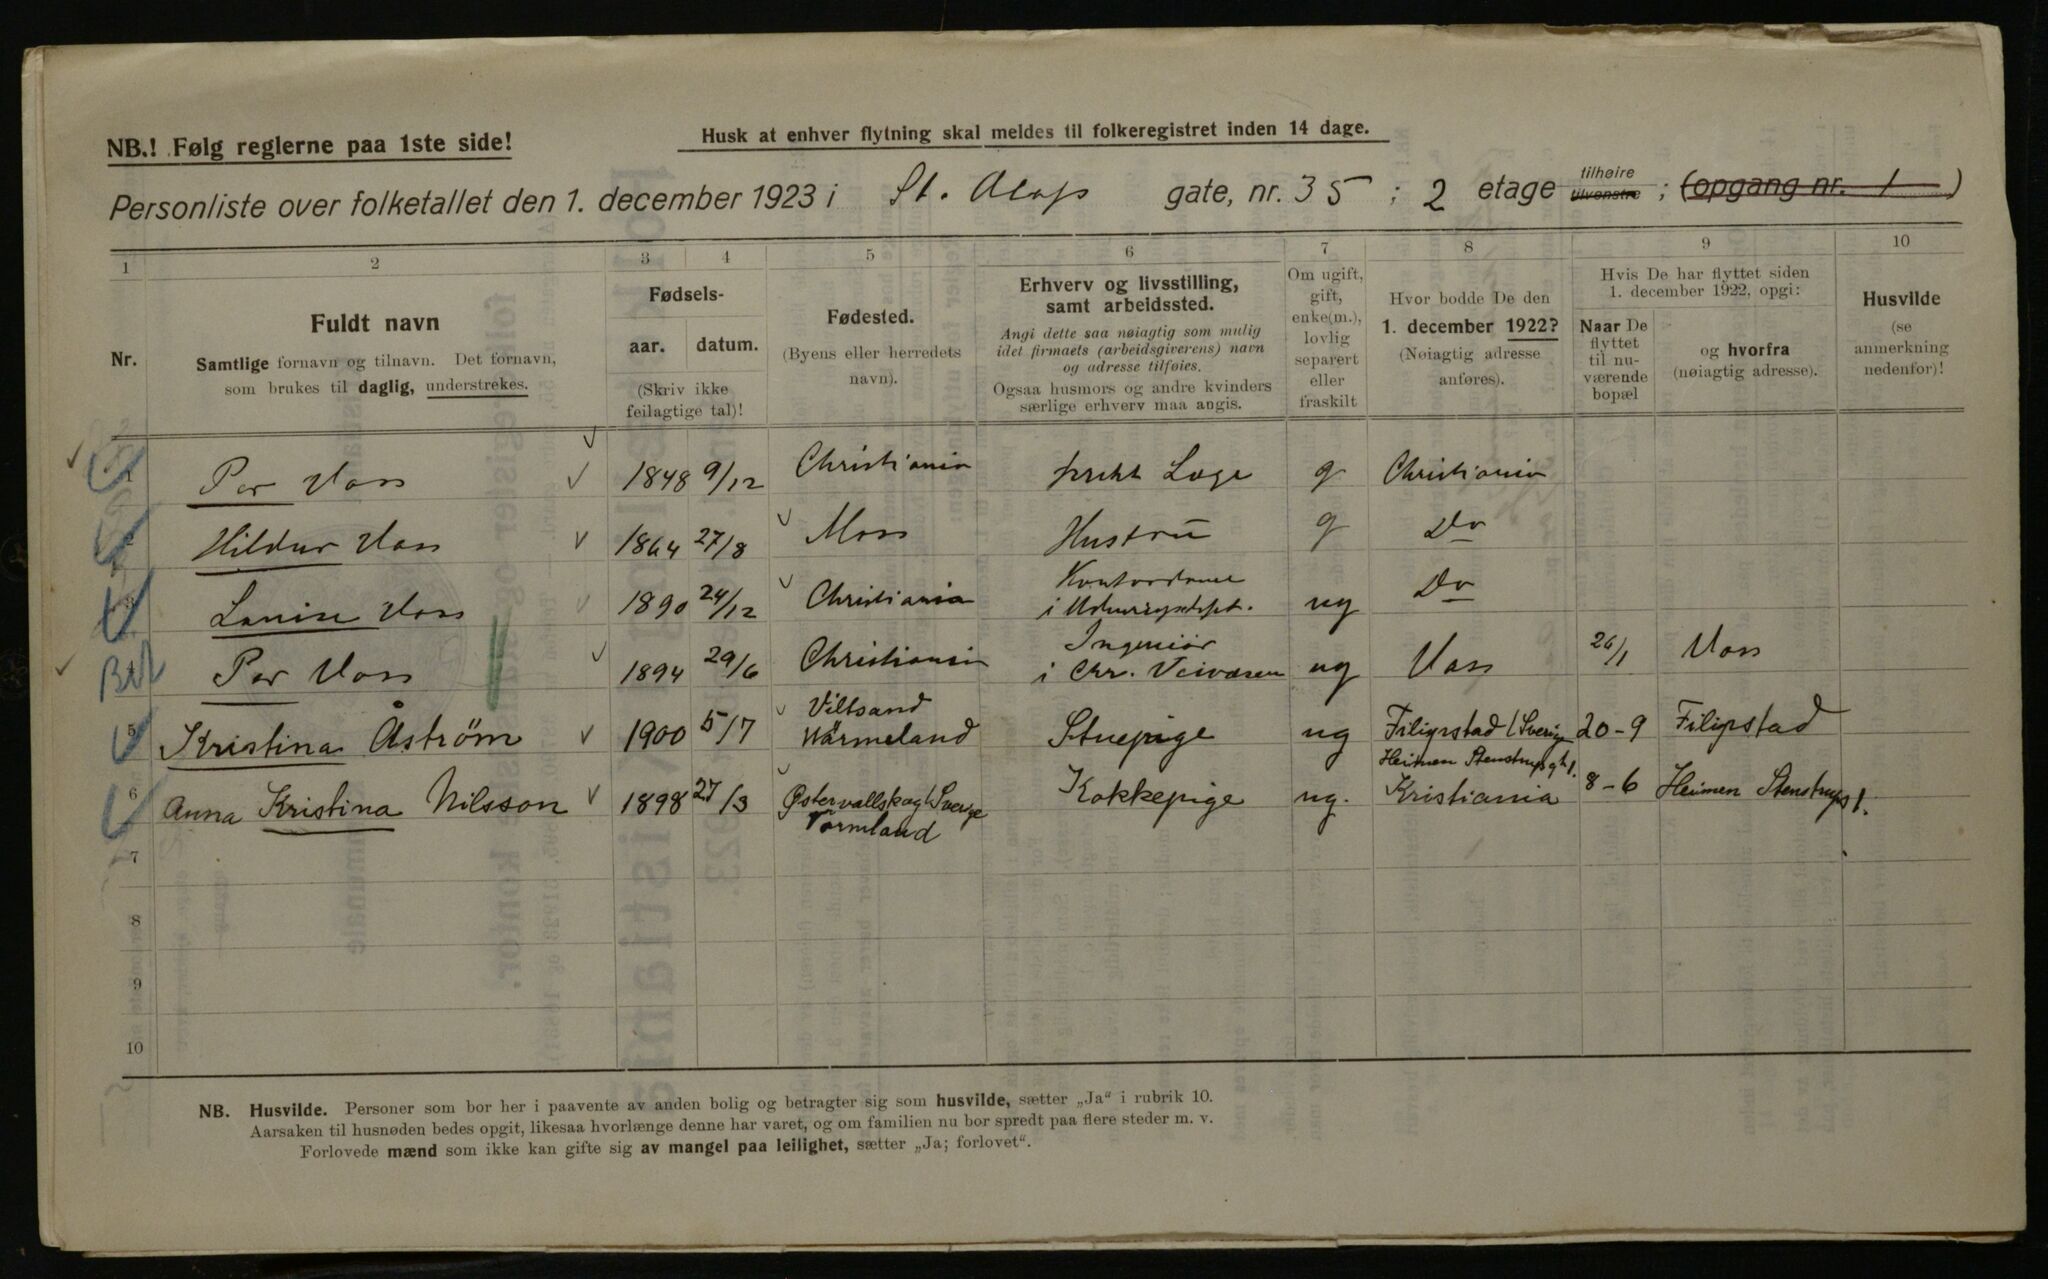 NB.! Følg reglerne paa 1ste side!
Husk at enhver flytning skal meldes til folkeregistret inden 14 dage.
Personliste over folketallet den 1. december 1923 i St. Olafs gate, nr. 35 ; 2 etage tilhøire tilvenstre ; (opgang nr. 1 )
1 2 3 4 5 6 7 8 9 10
Nr.
Fuldt navn
Samtlige fornavn og tilnavn. Det fornavn,
som brukes til daglig, understrekes.
Fødsels-
aar. datum.
(Skriv ikke
feilagtige tal)!
Fødested.
(Byens eller herredets
navn).
Erhverv og livsstilling,
samt arbeidssted.
Angi dette saa nøiagtig som mulig
idet firmaets (arbeidsgiverens) navn
og adresse tilføies.
Ogsaa husmors og andre kvinders
særlige erhverv maa angis.
Om ugift,
gift,
enke(m.),
lovlig
separert
eller
fraskilt
Hvor bodde De den
1. december 1922?
(Nøiagtig adresse
anføres).
Hvis De har flyttet siden
1. december 1922, opgi:
Naar De
flyttet
til nu-
værende
bopæl
og hvorfra
(nøiagtig adresse).
Husvilde
(se
anmerkning
nedenfor)!
1 Per Voss 1848 9/12 Christiania prakt Læge g Christiania
2 Hildur Voss 1864 27/8 Moss Hustru g Do
3 Louise Voss 1890 24/12 Christiania Kontordame i ug Do
4 Per Voss 1894 29/6 Christiania Ingeniør i Chr. Veivæsen ug Voss 26/1 Voss
5 Kristina Åström 1900 5/7 Värmeland Stuepige ug Filipstad (Sverige 20-9 Filipstad
6 Anna Kristina Nilsson 1898 27/3 Östervallskog (Sverige Vermland Kokkepige ug. Heimen Stenstrupsgt 1. Kristiania 8-6 Heimen Stenstrups 1.
7
8
9
10
NB. Husvilde. Personer som bor her i paavente av anden bolig og betragter sig som husvilde, sætter „Ja“ i rubrik 10.
Aarsaken til husnøden bedes opgit, likesaa hvorlænge denne har varet, og om familien nu bor spredt paa flere steder m. v.
Forlovede mænd som ikke kan gifte sig av mangel paa leilighet, sætter „Ja; forlovet“.